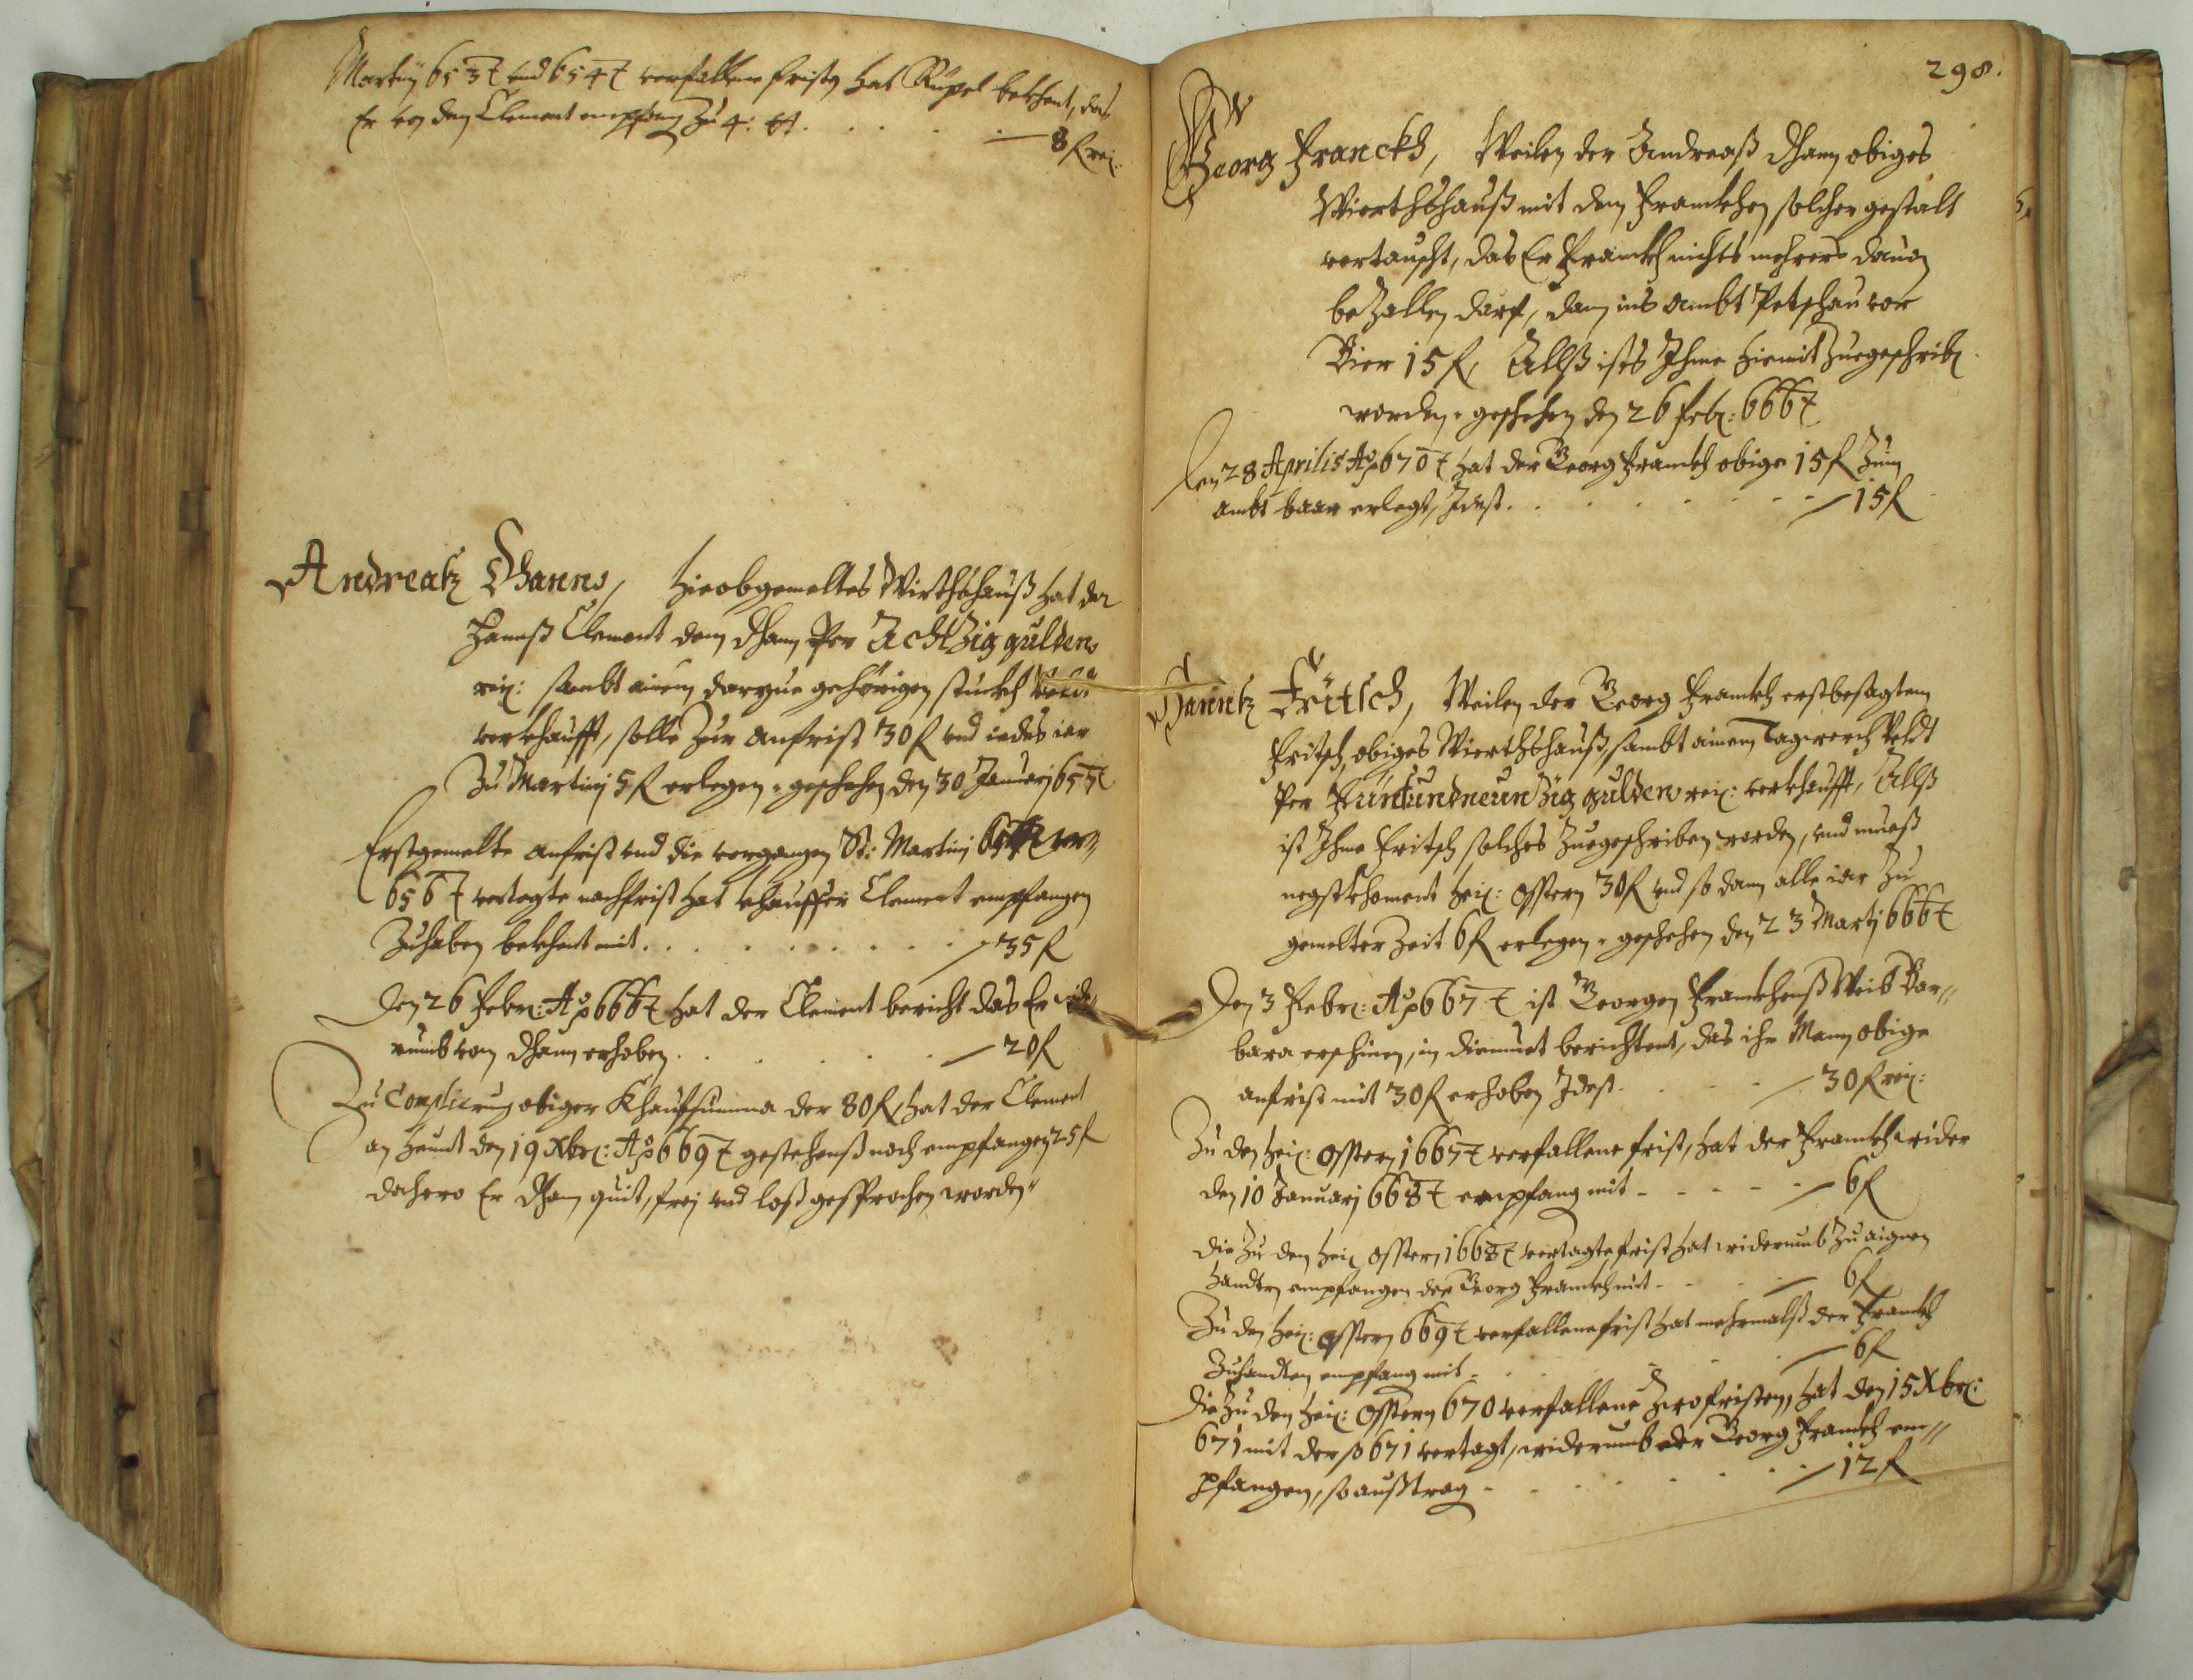 Martinj 653t vnd 654t verfallene fristen hat Rüpel bekhent, das
Er von dem Clement empfangen zu 4: fl. . . . . — 8 f rei:
Andreaß Dhanns, hieobgemeltes Wirthshauß hat der
Hannß Clement dem Dham per Achtzig gulden
rei: sambt einem darzue gehörigen stuckh
verkhaufft, solle zur anfrist 30 f vnd iedes iar
zu Martinj 5 f erlegen, geschehen den 30 Januarj 655t
Erstgemelte anfrist vnd die vergangen St: Martinj
656t vertagte nachfrist hat khauffer Clement empfangen
zuhaben bekhent mit . . . . . . . . — 35 f
Den 26 Febr: Ao 666t hat der Clement bericht das Er wide,,
rumb vom Dham erhoben . . . . . — 20 f
Zu Complirung obiger Khaufsumma der 80 f, hat der Clement
an heundt den 19 Xbr: Ao 669t gestehenß noch empfangen 25 f
dahero Er Dham quit, frej vnd loß gesprochen worden"
298.
Georg Franckh, Weilen der Andreaß Dham obiges
Wierthshauß mit dem Franckhen solcher gestalt
vertauscht, das Er Franckh nichts mehrers dauon
bezallen darf, dann ins Ambt Petschau vor
Bier 15 f, Allß ists Ihme hiemit zuegeschriben
worden, geschehen den 26 Febr: 666t
Den 28 Aprilis Ao 670t hat der Georg Franckh obige 15 f zum
Ambt baar erlegt, Idest . . . . . . . — 15 f
Hannß Fritsch, Weilen der Georg Franckh erstbesagtem
Fritsch, obiges Wierthshauß, sambt einem Tagwerch Veldt
per Fünfundneunzig gulden rei: verkhaufft, Allß
ist Ihme Fritsch solches zuegeschriben worden, vnd mueß
negstkhoment hei: Ostern 30 f vnd so dann alle iar zu
gemelter Zeit 6 f erlegen, geschehen den 23 Martj 666t
Den 3 Febr: Ao 667t ist Georgen Franckhenß Weib Bar,,
bara erschinen, in diemuet berichtent, das ihr Mann obige
anfrist mit 30 f erhoben Idest . . . . — 30 f rei:
Zu den hei: Ostern 1667t verfallene frist, hat der Franckh wider
den 10 Januarj 668t empfang mit - - - - - — 6 f
Die zu den hei: Ostern 1668t vertagte frist hat widerumb zu aignen
handten empfangen der Georg Franckh mit - - - — 6 f
Zu den hei: Ostern 669t verfallene frist hat mehrmalß der Franckh
zuhandten empfang mit - . . . . — 6 f
Die zu den hei: Ostern 670 verfallene zwo fristen, hat den 15 Xbr:
671 mit der so 671 vertagt, widerumb der Georg Franckh em,,
pfangen, so außtrag - . . . . . . — 12 f